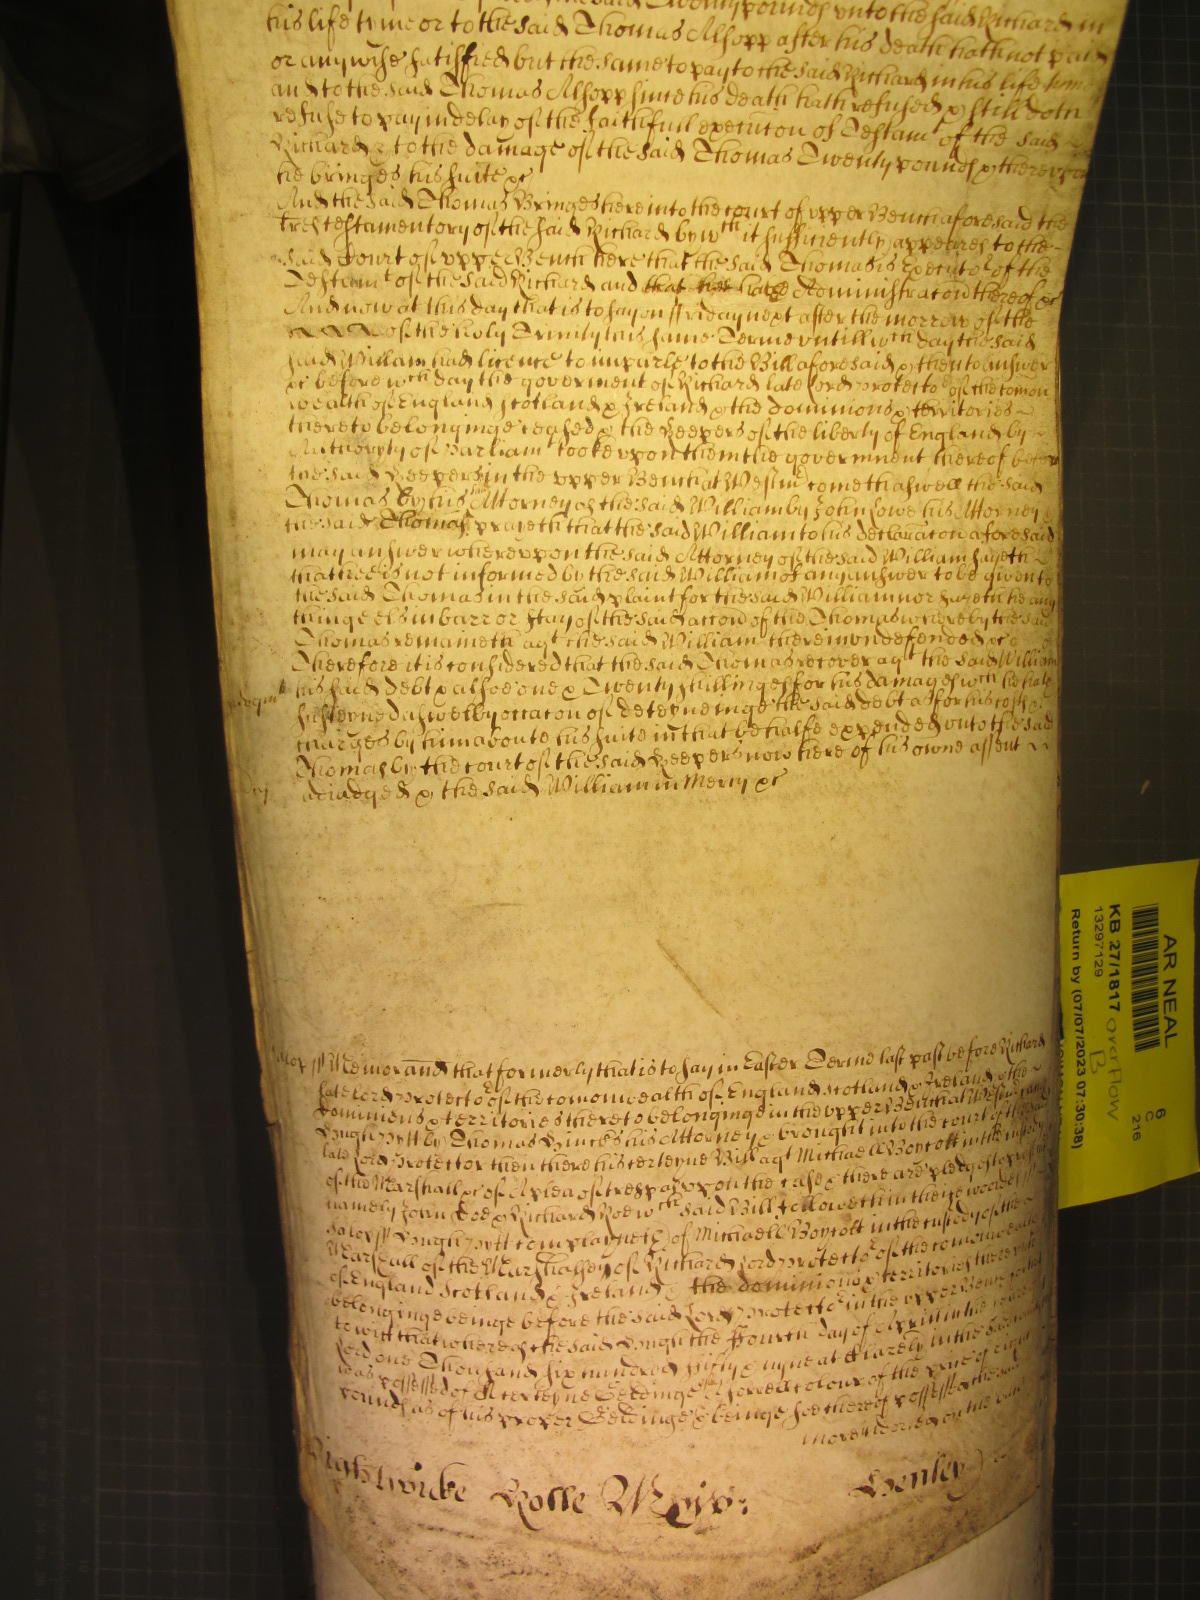 Twenty pounds unto the said Richard in
his life tyme or to the said Thomas Alsopp after his death hath not paid
or anywise satisfied but the same to pay to the said Richard in his life tyme
and to the said Thomas Alsopp since his death hath refused & still doth
refuse to pay in delay of the faithfull execucon of Testamt of the said
Richard & to the damage of the said Thomas Twenty pounds & thereupon
he bringes his suite &c
And the said Thomas Bringes here into the court of upper Bench aforesaid the
lres testamentory of the said Richard by wch it sufficiently appeares to the
said Court of upper Bench here that the said Thomas is Executor of the
Testamt of the said Richard and that hee hath Administracon thereof &c
And now at this day that is to say on ffriday next after the morrow of the
of the holy Trinity this same Terme untill wch day the said
said William had licence to imparle to the Bill aforesaid & then to answer
&c before wch day the goverment of Richard late Lord protector of the comon
wealth of England Scotland & Ireland & the dominions & territories
thereto belonginge ceased & the Keepers of the liberty of England by
Authoryty of Parliamt tooke upon them the government thereof before
the said Keepers in the upper Bench at Westmr cometh aswell the said
Thomas by his said Attorney as the said William by John Lowe his Attorney &
the said Thomas prayeth that the said William to his declaracon aforesaid
may answer whereupon the said Attorney of the said William sayeth
that hee is not informed by the said William of any answer to be given to
the said Thomas in the said plaint for the said William nor sayeth he any
thinge els in barr or stay of the said accon of the Thomas whereby the said
Thomas remaineth agt the said William therein undefended &c
Therefore it is considered that the said Thomas recover agt the said William
his said debt & alsoe one & Twenty shillinges for his damages wch he hath
susteyned aswell by occacon of deteyneinge the said debt as for his costs &
charges by him aboute his suite in that behalfe expended unto the said
Thomas by the court of the said Keepers now here of his owne assent
adiudged & the said William in Mercy &c
Salop /// Memorand that formerly that is to say in Easter Terme last past before Richard
late Lord Protector of the comonwealth of England Scotland & Ireland & the
dominions & territories thereto belonginge in the upper Bench at Westmr came
Hugh Pytt by Thomas Hincks his Attorney & brought into the court of the said
late Lord Protector then there his certeyne Bill agt Michaell Boycott in the custody
of the Marshall &c of A plea of trespas upon the case & there are pledges to prosecute
namely John Doe & Richard Roe wch said Bill followeth in these wordes ///
Salop /// Hugh Pytt complayneth of Michaell Boycott in the custody of the
Marshall of the Marshalsey of Richard Lord Protector of the comonwealth
of England Scotland & Ireland & the dominions & territories thereunto
belonginge beinge before the said Lord Protector in the upper Bench
to witt that whereas the said Hugh the ffourth day of Aprill in the yeare
Lord one Thousand six hundred fifty & nyne at in the
was possessed of A certeyne Geldinge of A sorrell colour of the price of
pounds as of his proper Geldinge & beinge soe thereof possessed the said
Rolle Mixv: Henley
AR NEAL
KB 27/1817 overflow
B
13297129
Return by (07/07/2023 07:30:38)
6
C
216